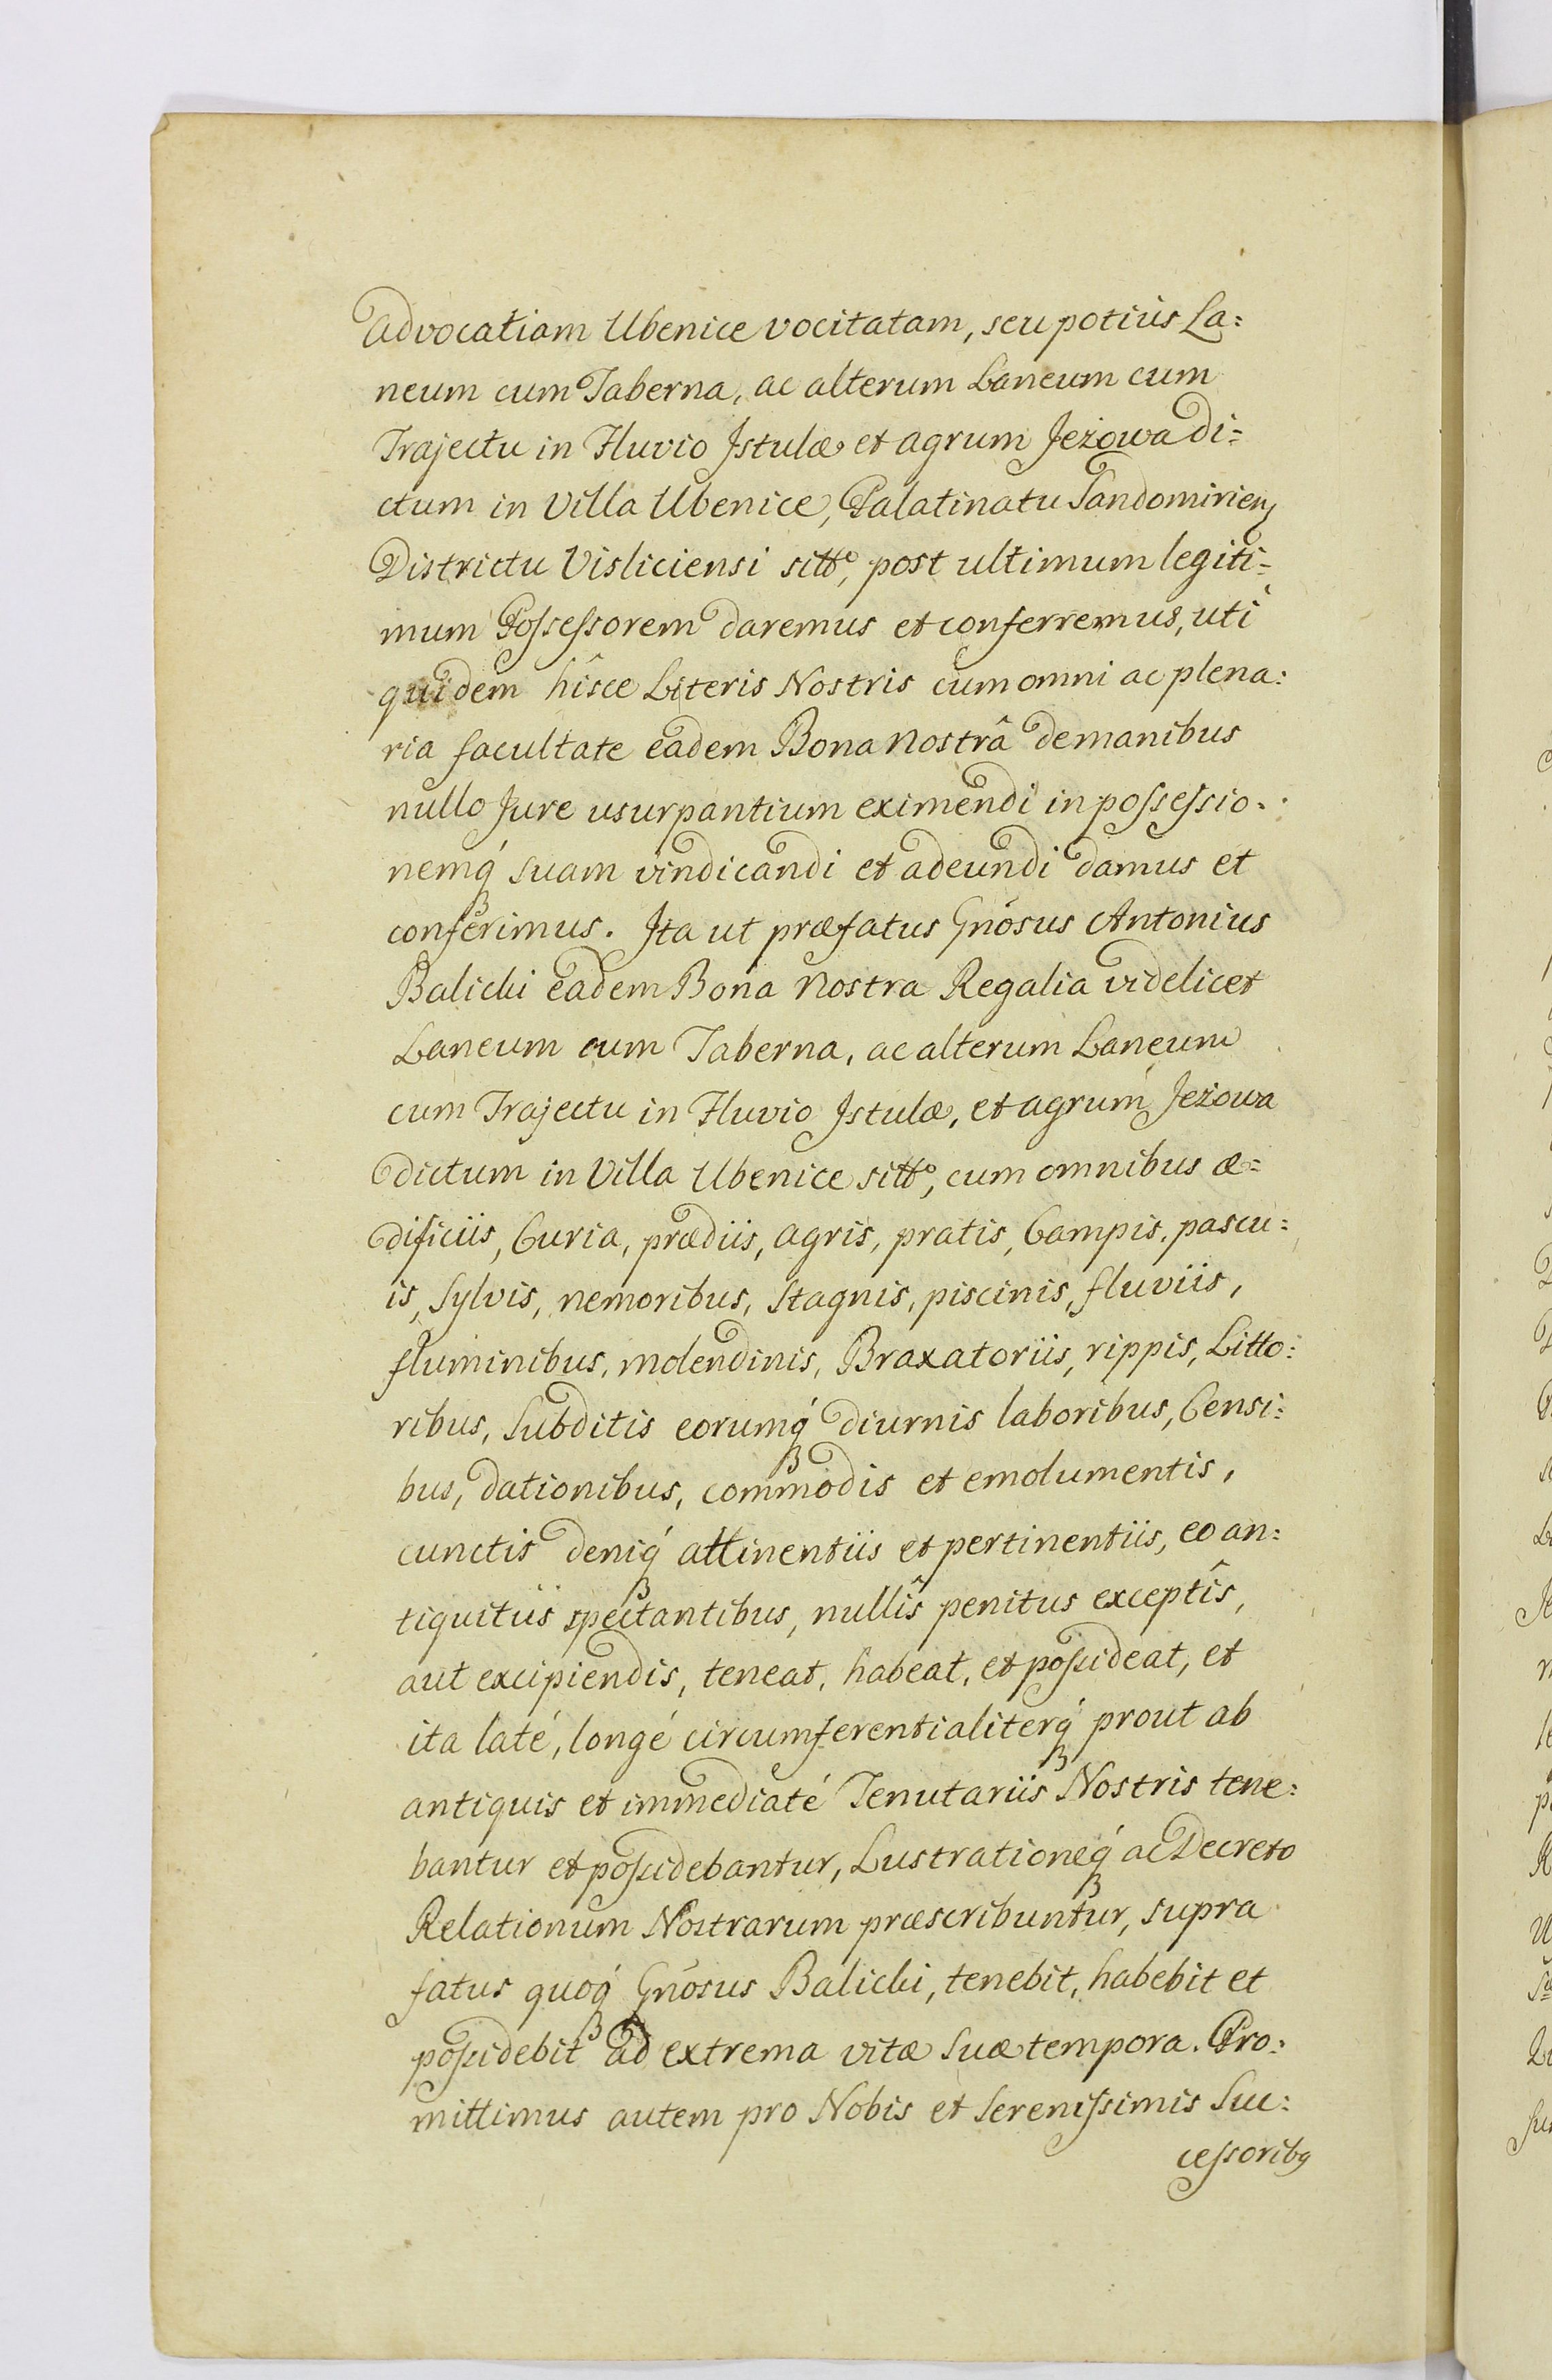 Advocatiam Ubenice vocitatam, seu potius La:
neum cum Taberna, ac alterum Laneum cum
Trajectu in Fluvio Istulæ et agrum Jeżowa di:
ctum in Villa Ubenice, Palatinatu Sandomirien,
Districtu Visliciensi sitt°, post ultimum legiti:
mum Possessorem daremus et conferremus, uti
quidem hîsce Literis Nostris cum omni ac plena:
ria facultate eadem Bona Nostrâ de manibus
nullo Jure usurpantium eximendi in possessio:
nemq́ suam vindicandi et adeundi damus et
conferimus. Ita ut præfatus Gnõsus Antonius
Balicki eadem Bona Nostra Regalia videlicet
Laneum cum Taberna, ac alterum Laneum
cum Trajectu in Fluvio Istulæ, et agrum Jeżowa
dictum in Villa Ubenice sitt°, cum omnibus æ:
dificiis, Curia, prædiis, agris, pratis, Campis, pascu:
is, Sylvis, nemoribus, Stagnis, piscinis, fluviis,
fluminibus, molendinis, Braxatoriis, rippis, Litto:
ribus, Subditis eorumq́ diurnis laboribus, Censi:
bus, dationibus, commodis et emolumentis,
cunctis deniq́ attinentiis et pertinentiis, eo an:
tiquitus spectantibus, nullîs penitus exceptîs,
aut excipiendis, teneat, habeat, et possideat, et
ita laté, longé circumferentialiterq́ prout ab
antiquis et immediaté Tenutariis Nostris tene:
bantur et possidebantur, Lustrationeq́ ac Decreto
Relationum Nostrarum præscribuntur, supra
fatus quoq́ Gnõsus Balicki, tenebit, habebit et
possidebit ad extrema vitæ suæ tempora. Pro:
mittimus autem pro Nobis et Serenissimis Suc:
cessoribq